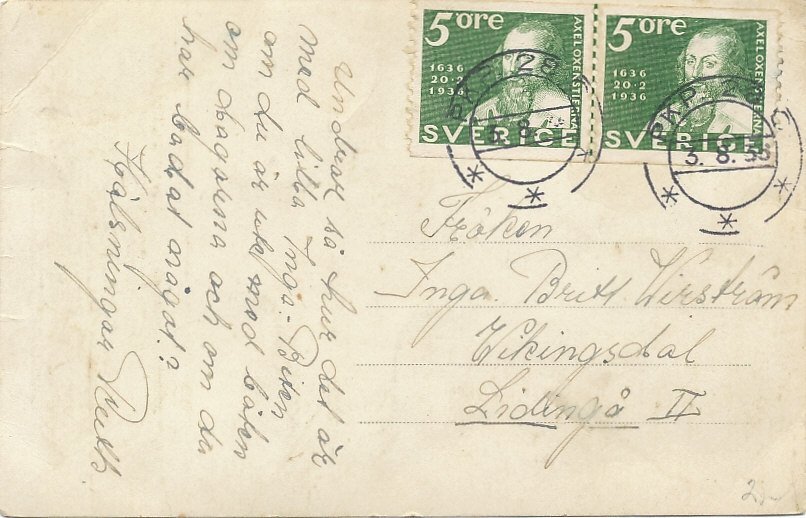 Undrar så hur det är
med lilla Inga-Briten
om du är ute med båten
om dagarna och om du
har badat något?
Hälsningar Ruth.
5 öre
1636
20·2
1936
AXEL OXENSTIERNA
SVERIGE
5 öre
1636
20·2
1936
AXEL OXENSTIERNA
SVERIGE
PKP
3. 8. 36
Fröken
Inga. Britt Wirström
Vikingsdal
Lidingö II